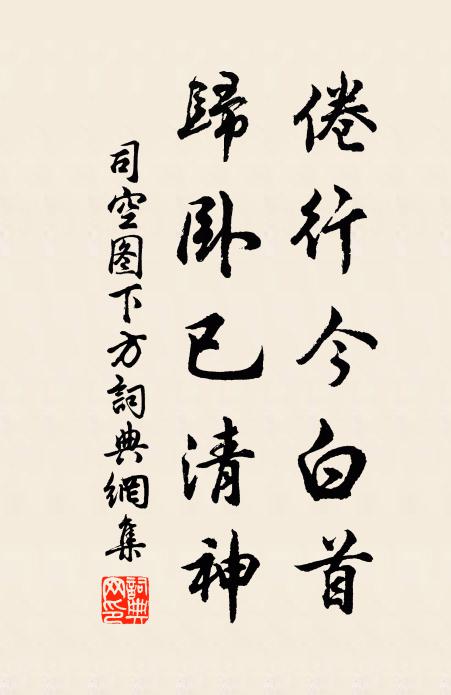 倦行今白首
歸卧已清神
司空图下方詞典網集
詞典网印